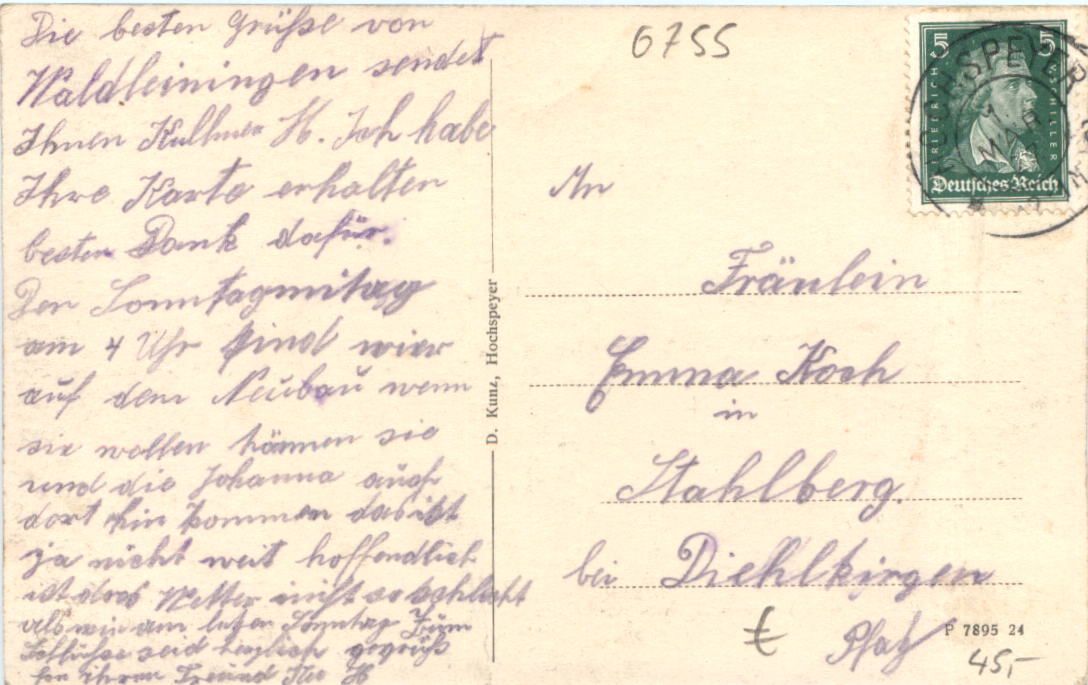 Die besten Grüße von
Waldleiningen sendet
Ihnen Kullmer H. Ich habe
Ihre Karte erhalten
besten Dank dafür.
Den Sonntagmitag
am 4 Uhr sind wier
auf dem Neubau wenn
sie wollen können sie
und die Johanna auch
dort hin kommen das ist
ja nicht weit hoffendlich
ist das Wetter nicht so schlecht
als wie am letzen Sonntag Zum
Schluße seid herzlich gegrüß
von ihren Freund H
D. Kunz, Hochspeyer
6755
5 5
FRIEDRICH V. SCHILLER
Deutsches Reich
HOCHSPEYER
MAR
An
Fräulein
Emma Koch
in
Stahlberg.
bei Diehlkirgen
Pfalz
P 7895 24
45,-